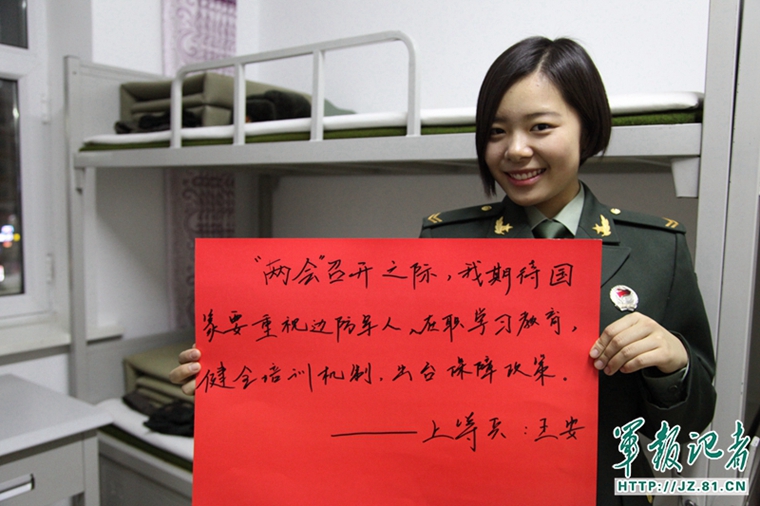 “两会”召开之际，我期待国
家要重视边防军人、在职学习教育，
健全培训机制，出台保障政策。
——上等兵：王安
軍報記者
HTTP://JZ.81.CN